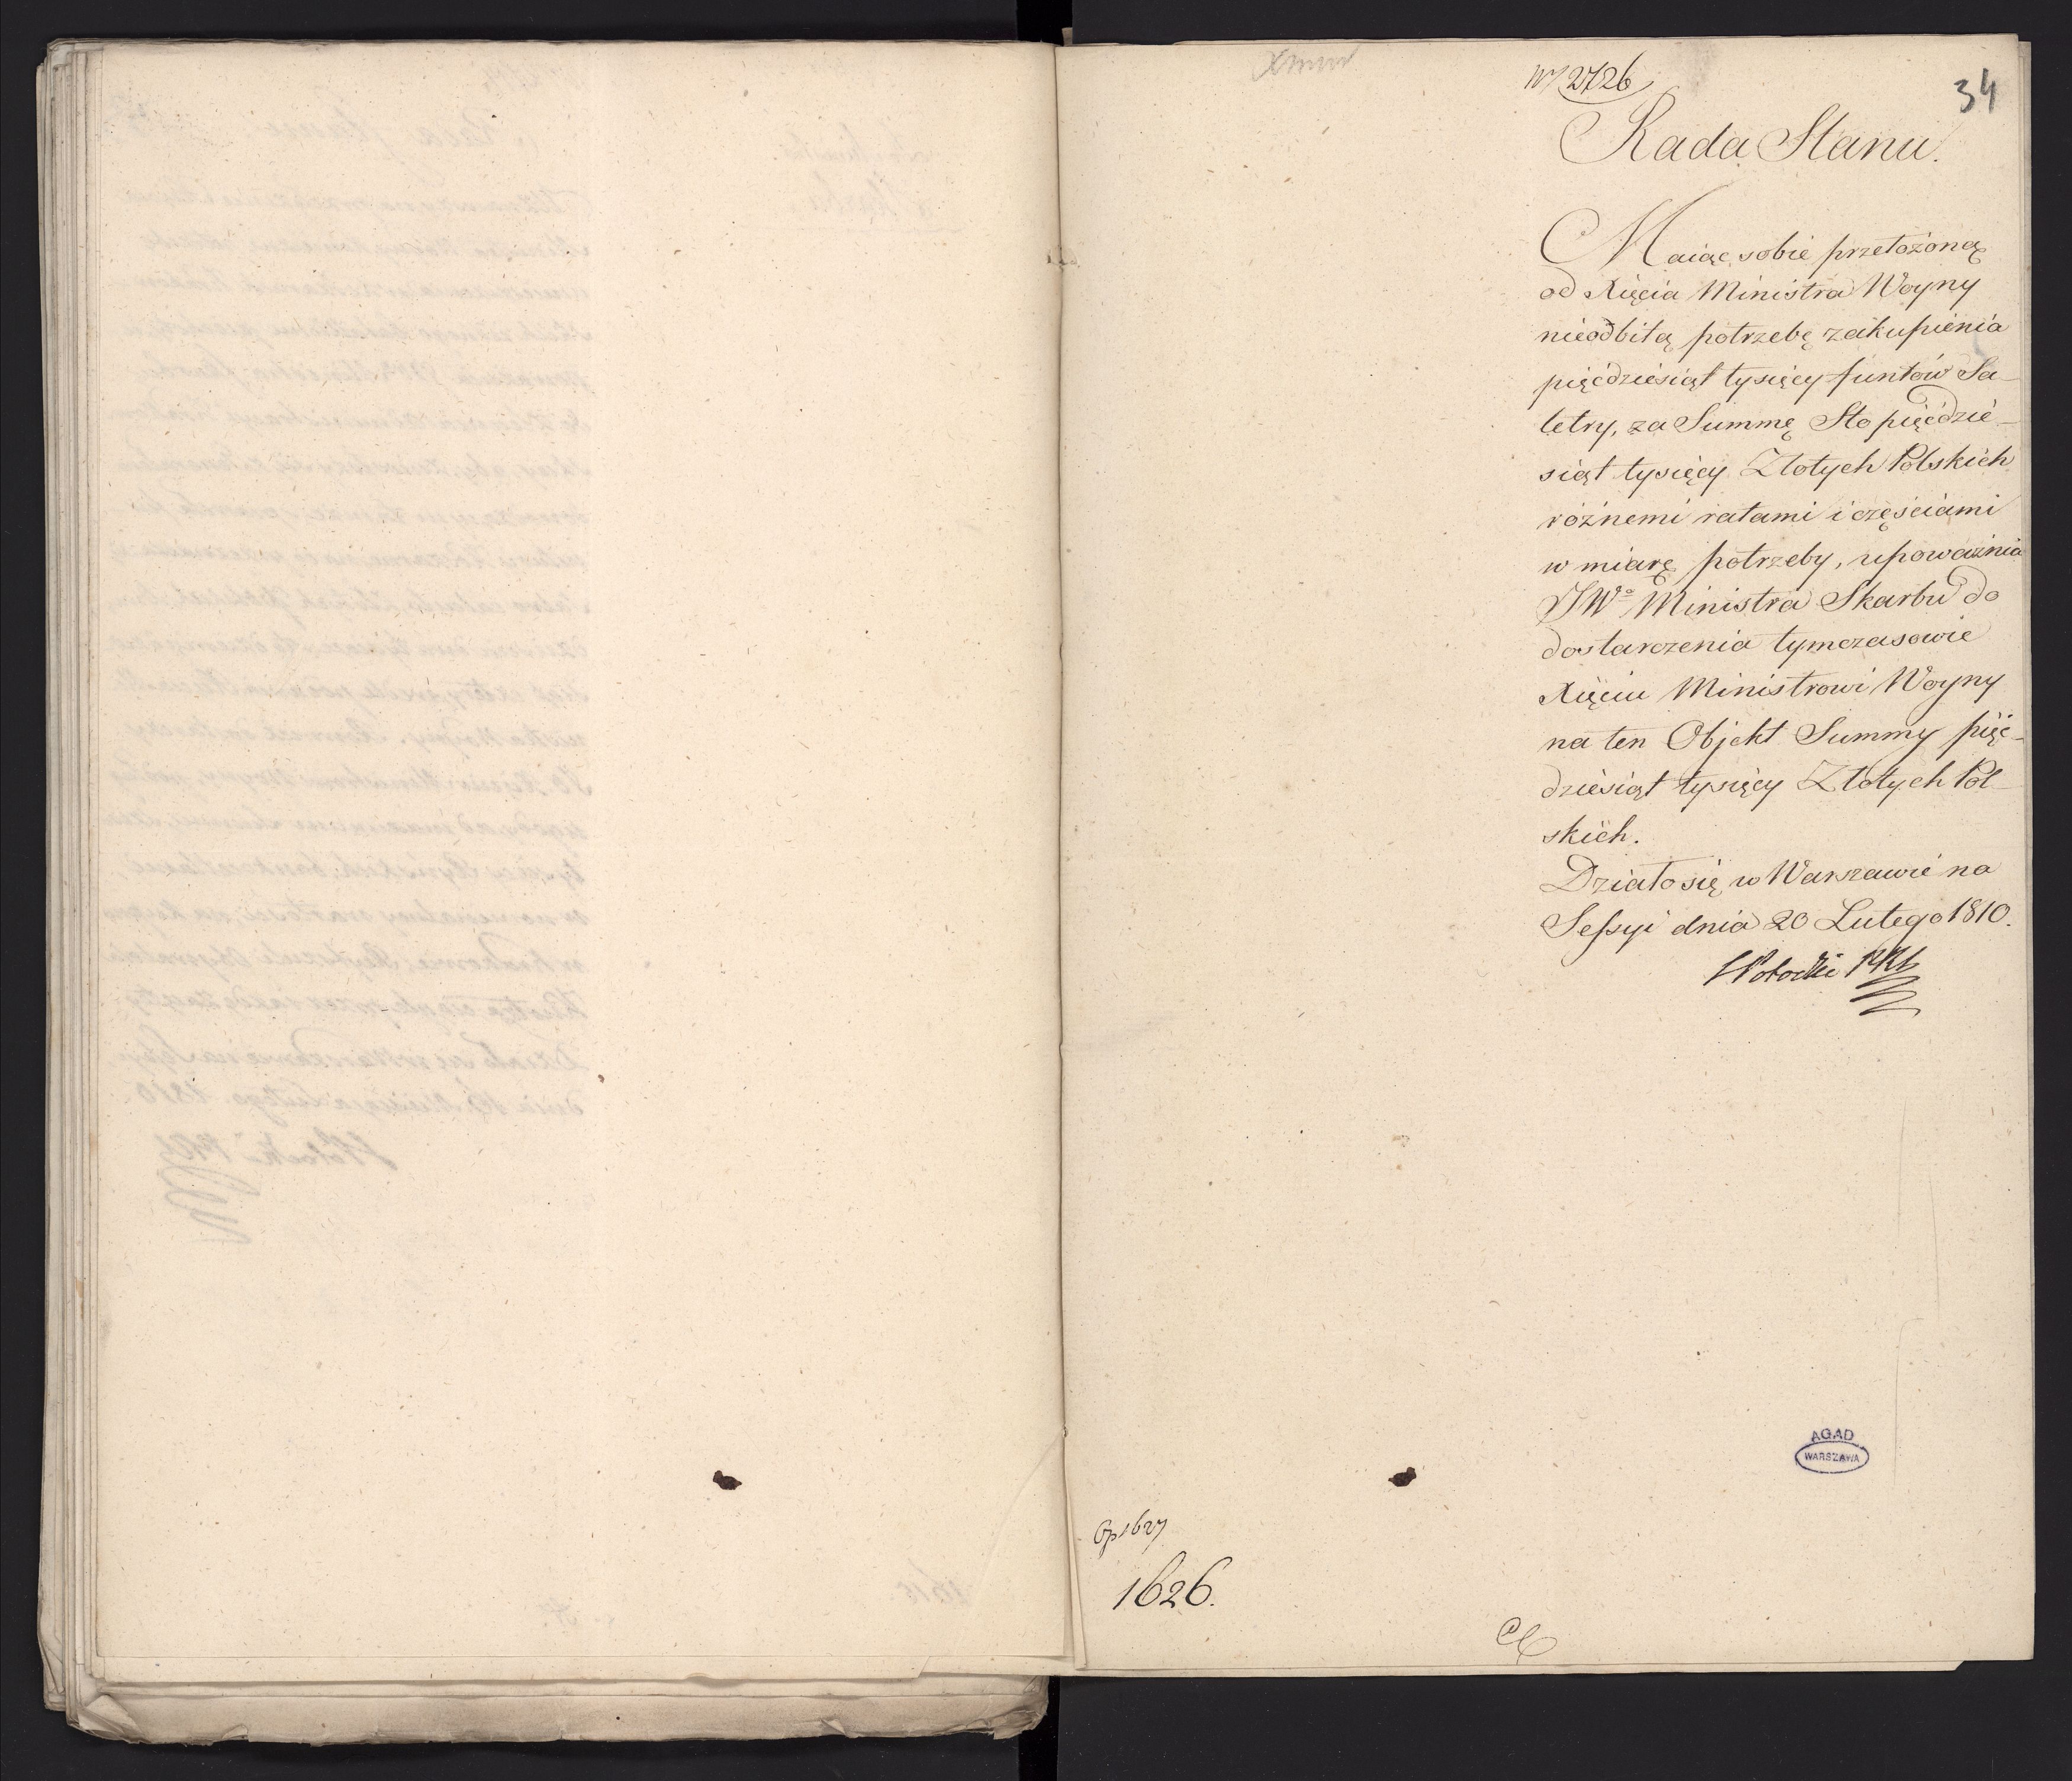 2726
34
Rada Stanu.
Maiąc sobie przełożoną
od Xięcia Ministra Woyny
nieodbitą potrzebę zakupienia
pięćdziesiąt tysięcy funtów Sa-
letry, za Summę Sto pięćdzie-
siąt tysięcy Złotych Polskich
różnemi ratami i częściami
w miarę potrzeby, upoważnia
JWo Ministra Skarbu do
dostarczenia tymczasowie
Xięciu Ministrowi Woyny
na ten Objekt Summy pięć-
dziesiąt tysięcy Złotych Pol-
skich.
Działo się w Warszawie na
Sessyi dnia 20 Lutego 1810.
SPotocki
AGAD
WARSZAWA
1627
1626.